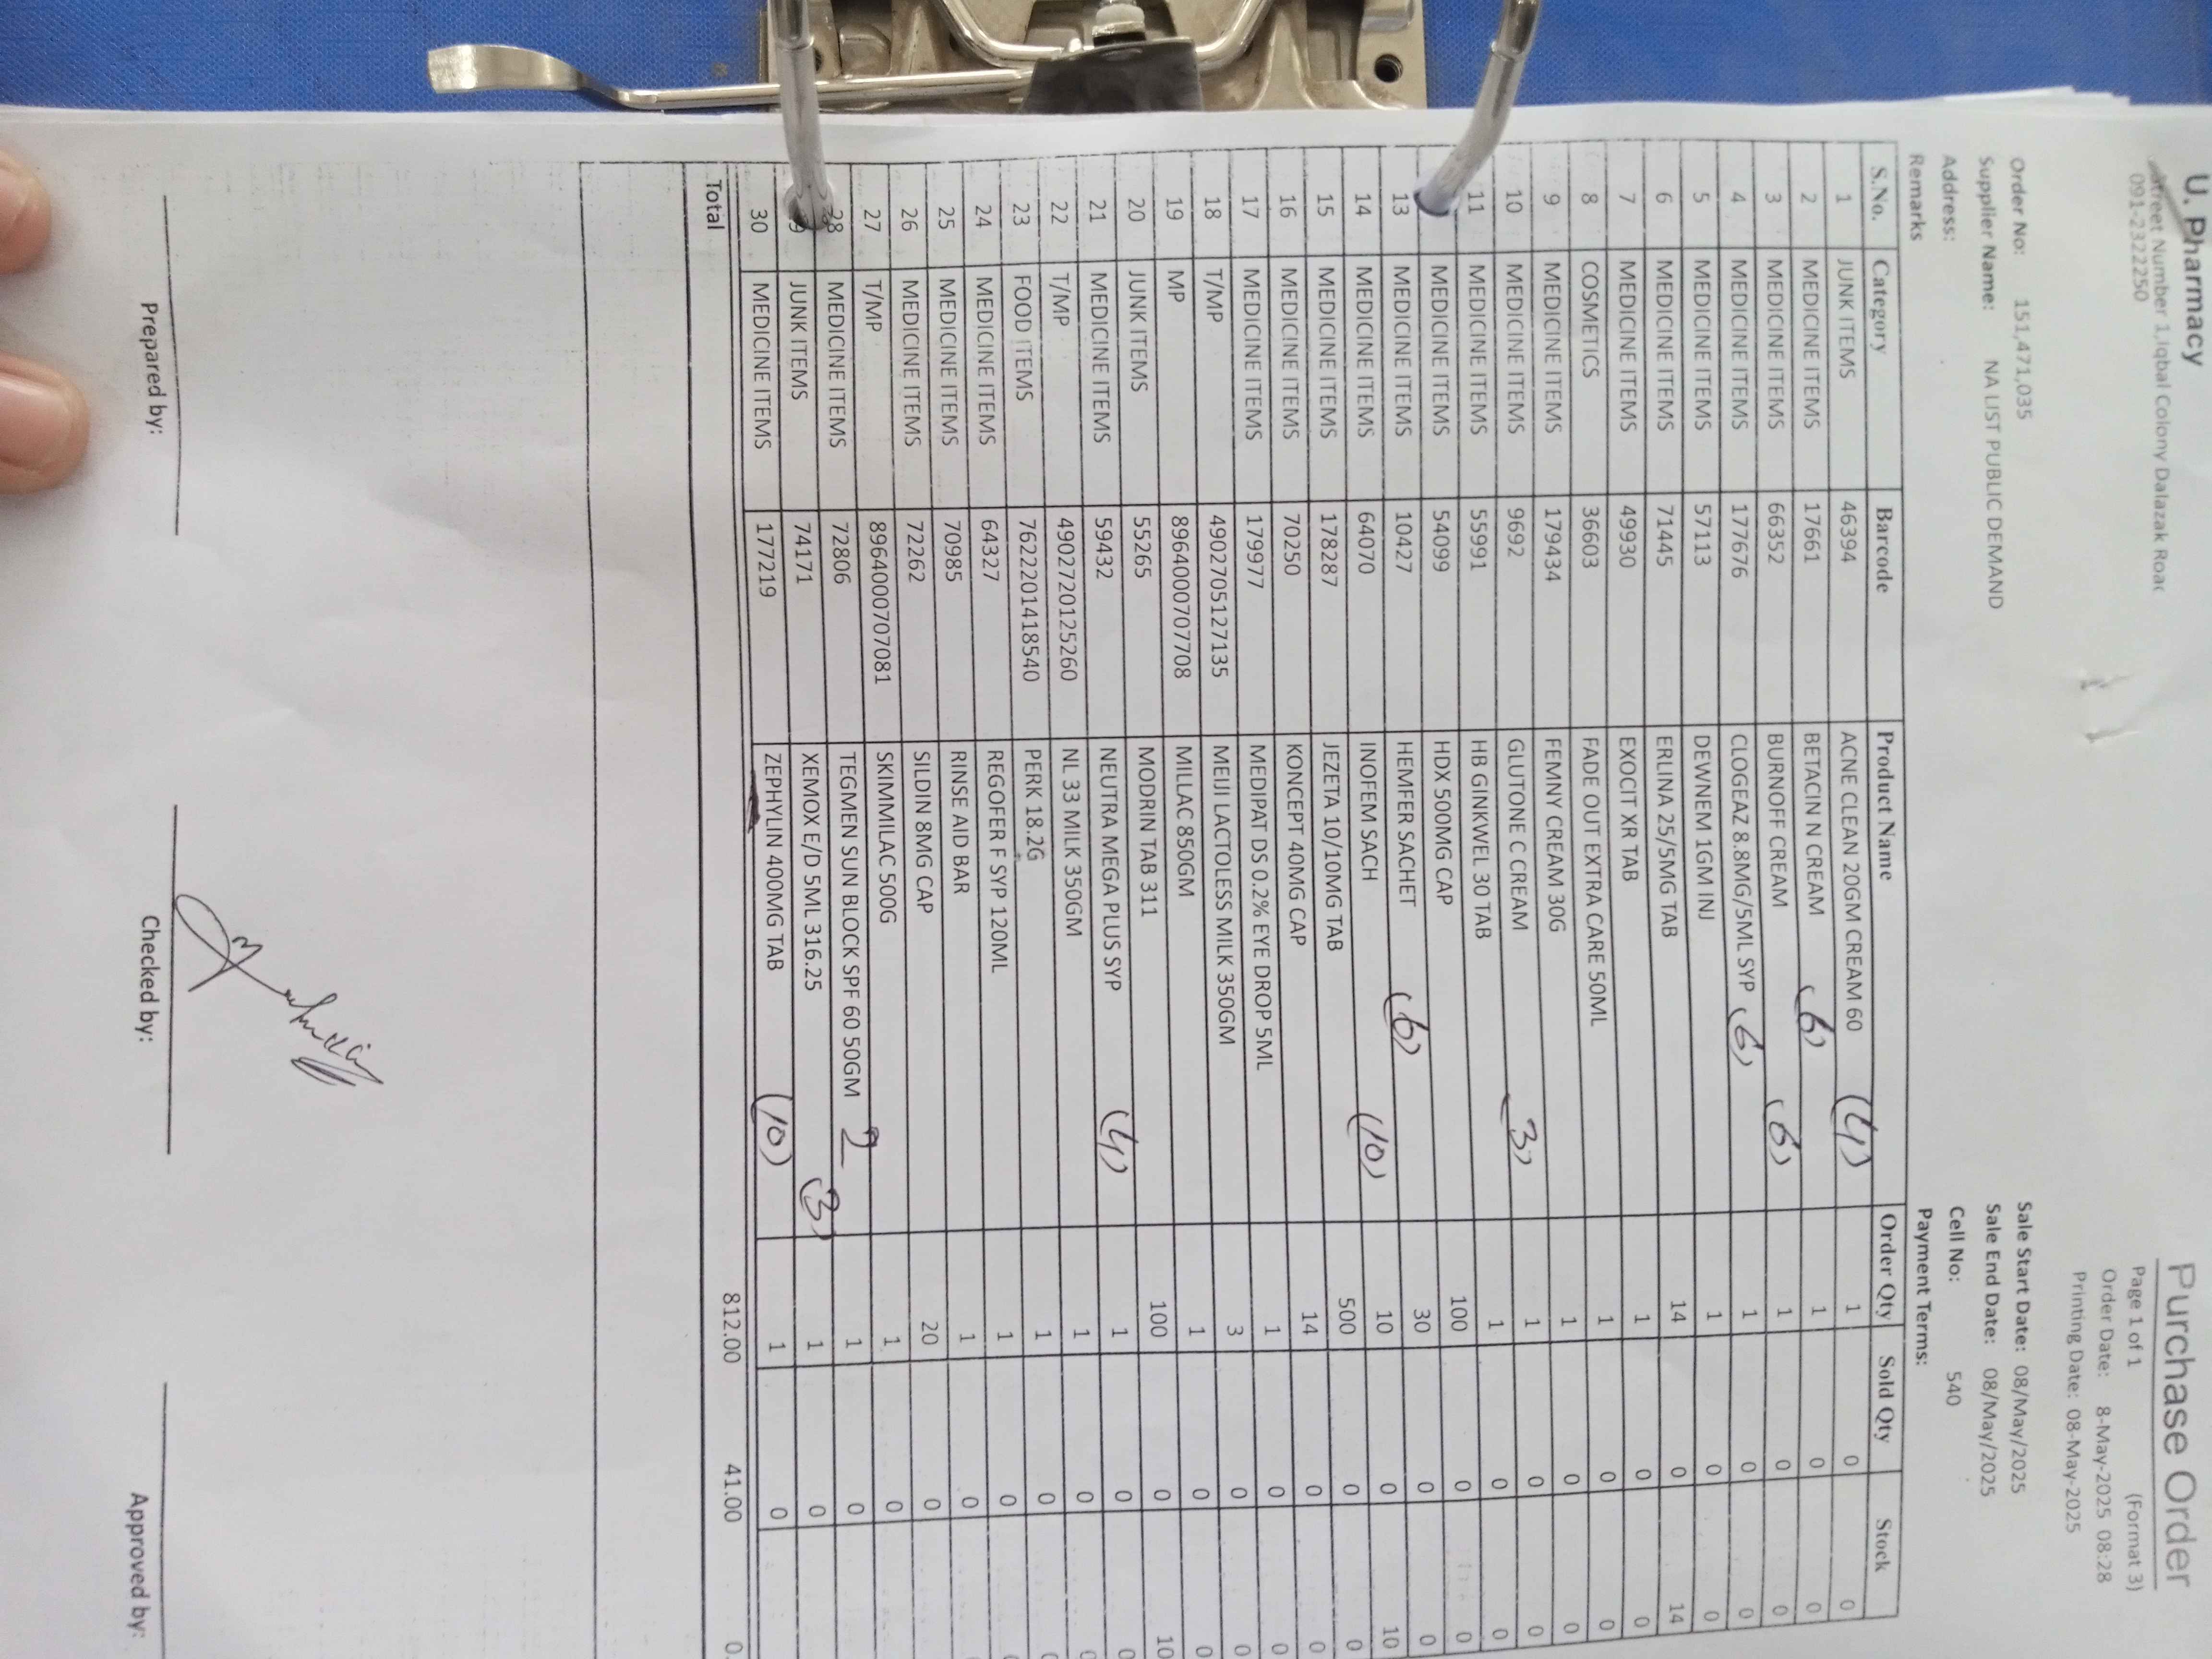 U. Pharmacy
Street Number 1,Iqbal Colony Dalazak Road
091-2322250
Purchase Order
Page 1 of 1 (Format 3)
Order Date: 8-May-2025 08:28
Printing Date: 08-May-2025
Order No: 151,471,035
Sale Start Date: 08/May/2025
Supplier Name: NA LIST PUBLIC DEMAND
Sale End Date: 08/May/2025
Address:
Cell No: 540
Remarks
Payment Terms:
S.No. Category Barcode Product Name Order Qty Sold Qty Stock
1 JUNK ITEMS 46394 ACNE CLEAN 20GM CREAM 60 (4) 1 0 0
2 MEDICINE ITEMS 17661 BETACIN N CREAM (6) 1 0 0
3 MEDICINE ITEMS 66352 BURNOFF CREAM (6) 1 0 0
4 MEDICINE ITEMS 177676 CLOGEAZ 8.8MG/5ML SYP (6) 1 0 0
5 MEDICINE ITEMS 57113 DEWNEM 1GM INJ 1 0 0
6 MEDICINE ITEMS 71445 ERLINA 25/5MG TAB 14 0 14
7 MEDICINE ITEMS 49930 EXOCIT XR TAB 1 0 0
8 COSMETICS 36603 FADE OUT EXTRA CARE 50ML 1 0 0
9 MEDICINE ITEMS 179434 FEMNY CREAM 30G 1 0 0
10 MEDICINE ITEMS 9692 GLUTONE C CREAM (3) 1 0 0
11 MEDICINE ITEMS 55991 HB GINKWEL 30 TAB 1 0 0
MEDICINE ITEMS 54099 HDX 500MG CAP 100 0 0
13 MEDICINE ITEMS 10427 HEMFER SACHET (6) 30 0 0
14 MEDICINE ITEMS 64070 INOFEM SACH (10) 10 0 10
15 MEDICINE ITEMS 178287 JEZETA 10/10MG TAB 500 0 0
16 MEDICINE ITEMS 70250 KONCEPT 40MG CAP 14 0 0
17 MEDICINE ITEMS 179977 MEDIPAT DS 0.2% EYE DROP 5ML 1 0 0
18 T/MP 4902705127135 MEIJI LACTOLESS MILK 350GM 3 0 0
19 MP 8964000707708 MILLAC 850GM 1 0 0
20 JUNK ITEMS 55265 MODRIN TAB 311 100 0 10
21 MEDICINE ITEMS 59432 NEUTRA MEGA PLUS SYP (4) 1 0 0
22 T/MP 4902720125260 NL 33 MILK 350GM 1 0 0
23 FOOD ITEMS 7622201418540 PERK 18.2G 1 0
24 MEDICINE ITEMS 64327 REGOFER F SYP 120ML 1 0
25 MEDICINE ITEMS 70985 RINSE AID BAR 1 0
26 MEDICINE ITEMS 72262 SILDIN 8MG CAP 20 0
27 T/MP 8964000707081 SKIMMILAC 500G 1 0
28 MEDICINE ITEMS 72806 TEGMEN SUN BLOCK SPF 60 50GM 2 1 0
JUNK ITEMS 74171 XEMOX E/D 5ML 316.25 (3) 1 0
30 MEDICINE ITEMS 177219 ZEPHYLIN 400MG TAB (10) 1 0
Total 812.00 41.00 0.
Prepared by: Checked by: Approved by: